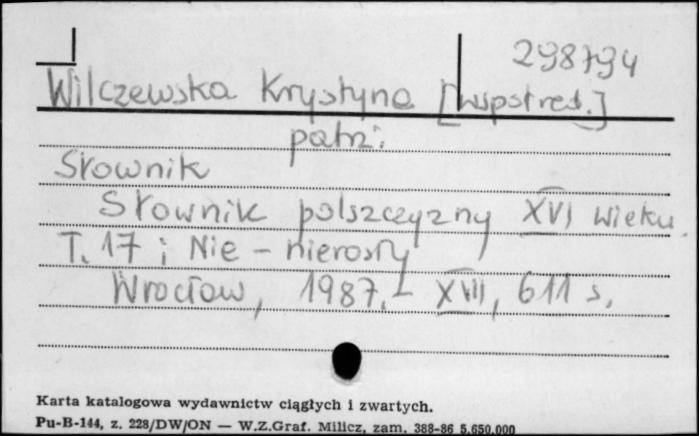 298794
Wilczewska Krystyna [wspstred.]
patrz:
Słownik
Słownik polszczyzny XVI wieku.
T. 17 : Nie - nierosły
Wrocław, 1987. - XVIII, 611 s.
Karta katalogowa wydawnictw ciągłych i zwartych.
Pu-B-144, z. 228/DW/ON — W.Z.Graf. Milicz, zam. 388-86 5.650.000